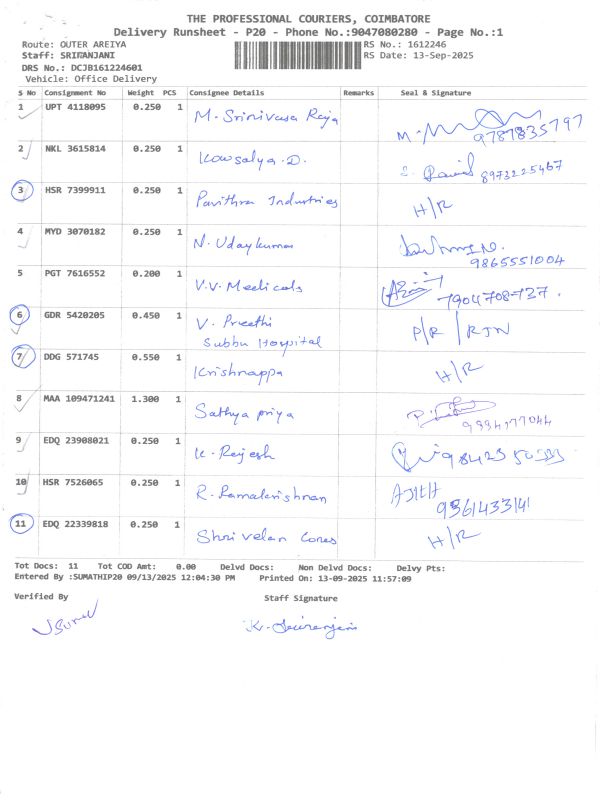 THE PROFESSIONAL COURIERS, COIMBATORE
Delivery Runsheet - P20 - Phone No.:9047080280 - Page No.:1
Route: OUTER AREIYA RS No.: 1612246
Staff: SRIRANJANI RS Date: 13-Sep-2025
DRS No.: DCJB161224601
Vehicle: Office Delivery
S No Consignment No Weight PCS Consignee Details Remarks Seal & Signature
1 UPT 4118095 0.250 1 M. Srinivasa Raja 9787835797
2 NKL 3615814 0.250 1 Kowsalya.D. 8973225467
3 HSR 7399911 0.250 1 Pavithra Industries H/R
4 MYD 3070182 0.250 1 N. Udaykumar 9865551004
5 PGT 7616552 0.200 1 V.V. Medicals 7904708737.
6 GDR 5420205 0.450 1 V. Preethi P/R / RTN
Subbu Hospital
7 DDG 571745 0.550 1 Krishnappa H/R
8 MAA 109471241 1.300 1 Sathya priya
9 EDQ 23908021 0.250 1 K. Rajesh
10 HSR 7526065 0.250 1 R. Ramakrishnan AJITH
9361433141
11 EDQ 22339818 0.250 1 Shri velan H/R
Tot Docs: 11 Tot COD Amt: 0.00 Delvd Docs: Non Delvd Docs: Delvy Pts:
Entered By :SUMATHIP20 09/13/2025 12:04:30 PM Printed On: 13-09-2025 11:57:09
Verified By Staff Signature